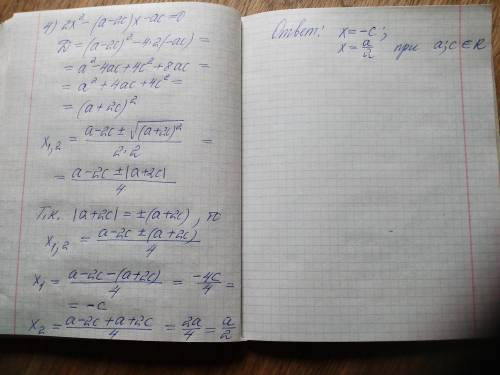 4) 2x² - (a-2c)x - ac = 0
D = (a-2c)² - 4·2(-ac) =
= a² - 4ac + 4c² + 8ac =
= a² + 4ac + 4c² =
= (a+2c)²
x₁,₂ = (a-2c ± √(a+2c)²)/(2·2) =
= (a-2c ± |a+2c|)/4
Т.к. |a+2c| = ±(a+2c), то
x₁,₂ = (a-2c ± (a+2c))/4
x₁ = (a-2c-(a+2c))/4 = -4c/4 =
= -c
x₂ = (a-2c+a+2c)/4 = 2a/4 = a/2
Ответ: x = -c;
x = a/2 при a;c ∈ R